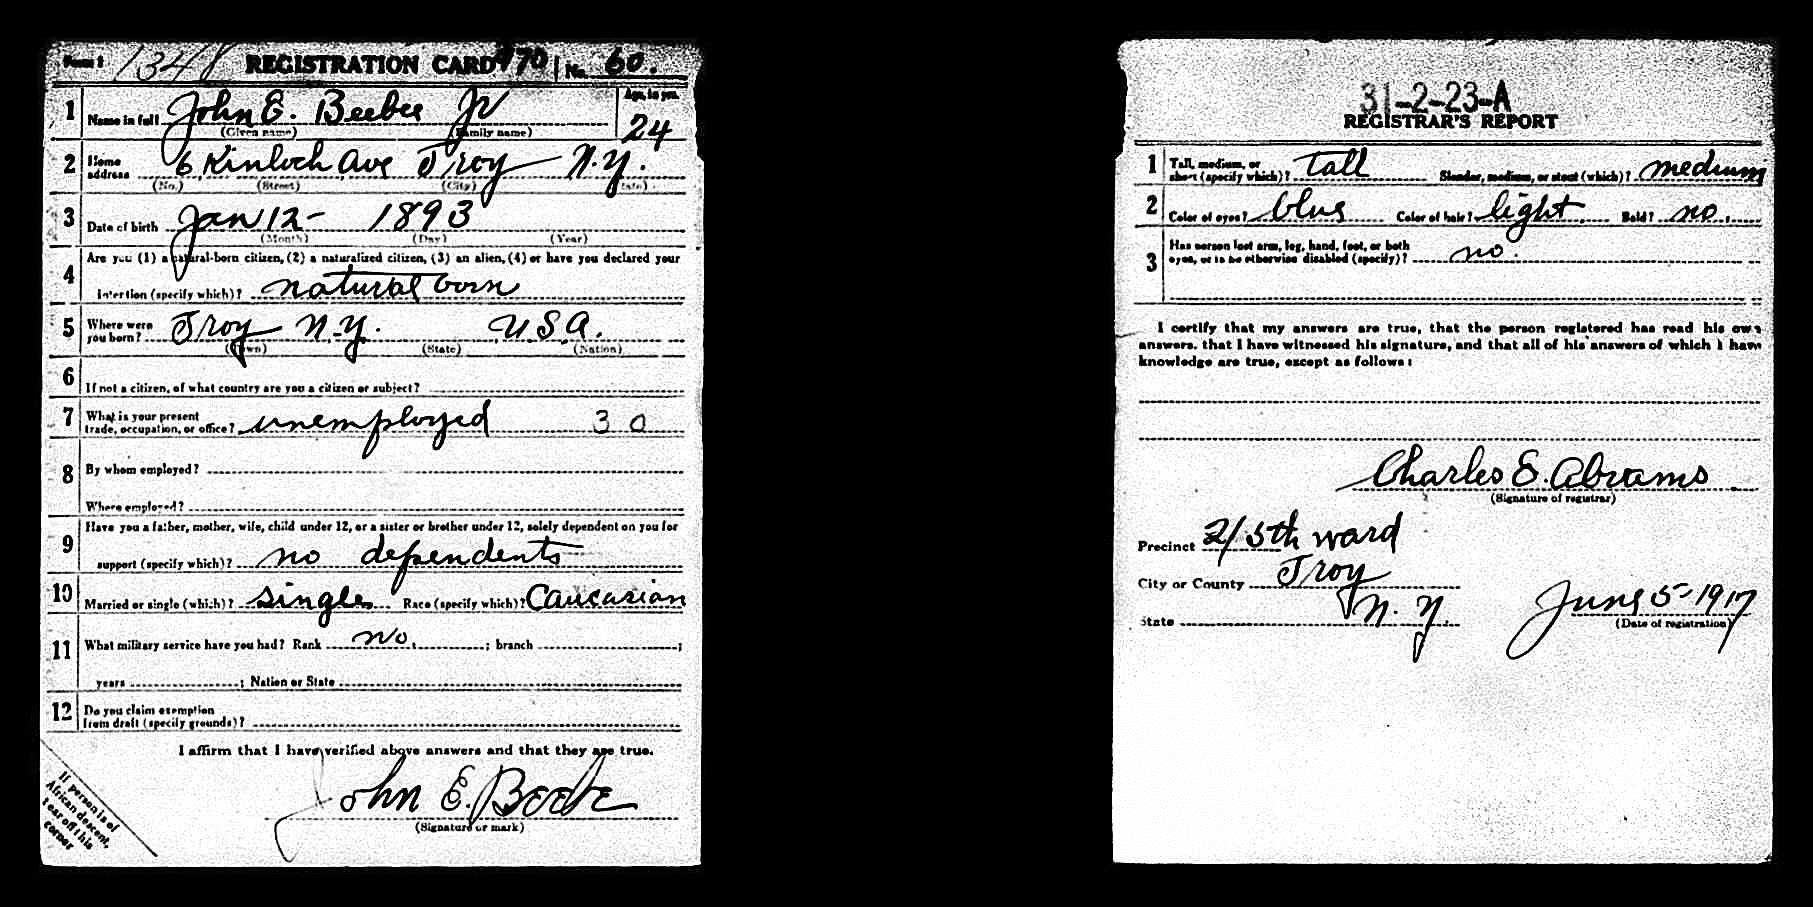 Form 1 1348 REGISTRATION CARD 470 No. 60.
1 Name in full John E. Beebee Jr Age, in yrs. 24
(Given name) (Family name)
2 Home address 6 Kinloch Ave Troy N.Y.
(No.) (Street) (City) (State)
3 Date of birth Jan 12 - 1893
(Month) (Day) (Year)
4 Are you (1) a natural-born citizen, (2) a naturalized citizen, (3) an alien, (4) or have you declared your
intention (specify which)? natural born
5 Where were you born? Troy N.Y. U.S.A.
(Town) (State) (Nation)
6 If not a citizen, of what country are you a citizen or subject?
7 What is your present trade, occupation, or office? unemployed 30
8 By whom employed?
Where employed?
9 Have you a father, mother, wife, child under 12, or a sister or brother under 12, solely dependent on you for
support (specify which)? no dependents
10 Married or single (which)? single Race (specify which)? Caucasian
11 What military service have you had? Rank no. ; branch ;
years ; Nation or State
12 Do you claim exemption from draft (specify grounds)?
I affirm that I have verified above answers and that they are true.
John E. Beebe
(Signature or mark)
If person is of
African descent,
tear off this
corner
31-2-23-A
REGISTRAR'S REPORT
1 Tall, medium, or short (specify which)? Tall Slender, medium, or stout (which)? medium
2 Color of eyes? blue Color of hair? light Bald? no.
3 Has person lost arm, leg, hand, foot, or both
eyes, or is he otherwise disabled (specify)? no.
I certify that my answers are true, that the person registered has read his own
answers, that I have witnessed his signature, and that all of his answers of which I have
knowledge are true, except as follows:
Charles E. Abrams
(Signature of registrar)
Precinct 2/5th ward
City or County Troy
State N.Y. June 5-1917
(Date of registration)